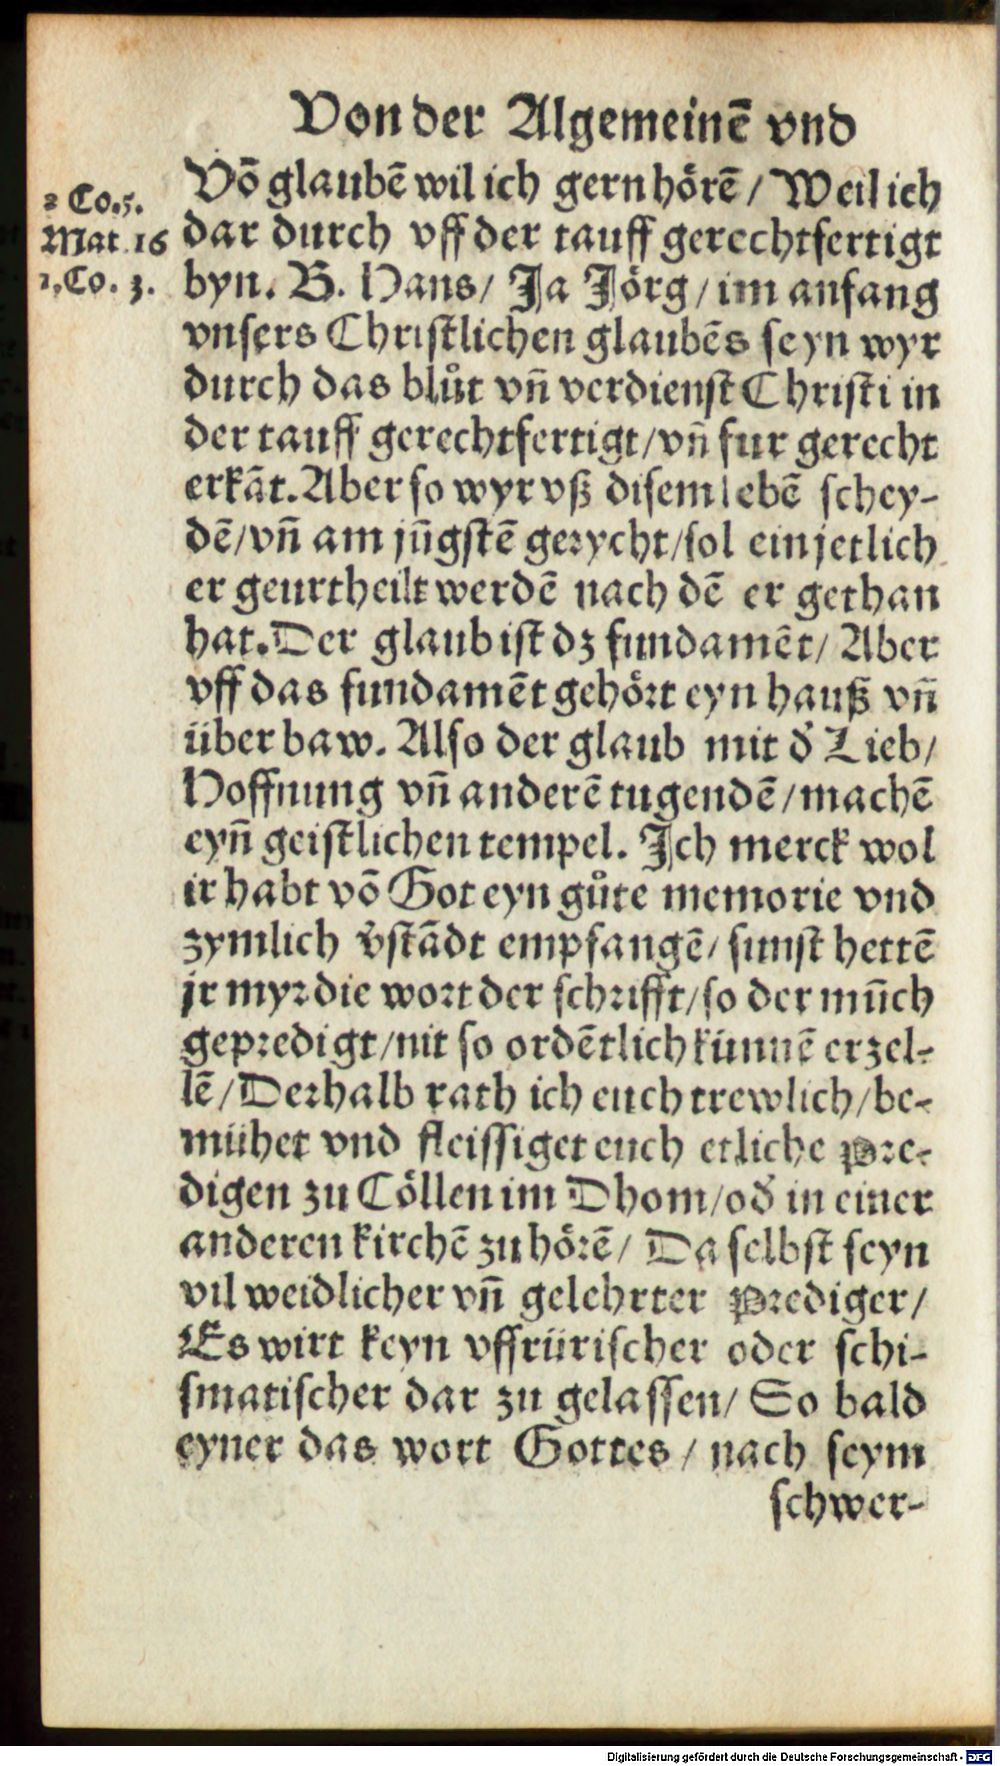 Von der Algemeinē vnd
Vō glaubē wil ich gern hörē / Weil ich
2 Co. 5.
dar durch vff der tauff gerechtfertigt
Mat. 16
byn. B. Hans / Ja Jörg / im anfang
1. Co. 3.
vnsers Christlichen glaubēs seyn wyr
durch das blůt vñ verdienst Christi in
der tauff gerechtfertigt / vñ fur gerecht
erkāt. Aber so wyr vß disem lebē schey-
dē / vñ am jūgstē gerycht / sol ein jetlich
er geurtheilt werdē nach dē er gethan
hat. Der glaub ist dz fundamēt / Aber
vff das fundamēt gehört eyn hauß vñ
überbaw. Also der glaub mit d̄ Lieb /
Hoffnung vñ anderē tugendē / machē
eyñ geistlichen tempel. Jch merck wol
ir habt vō Got eyn gůte memorie vnd
zymlich v̄stādt empfangē / sunst hettē
jr myr die wort der schrifft / so der mūch
gepredigt / nit so ordētlich künnē erzel-
lē / Derhalb rath ich euch trewlich / be-
mühet vnd fleissiget euch etliche Pre-
digen zu Cöllen im Dhom / od̄ in einer
anderen kirchē zu hörē / Da selbst seyn
vil weidlicher vñ gelehrter Prediger /
Es wirt keyn vffrürischer oder schi-
smatischer dar zu gelassen / So bald
eyner das wort Gottes / nach seym
schwer-
Digitalisierung gefördert durch die Deutsche Forschungsgemeinschaft - DFG